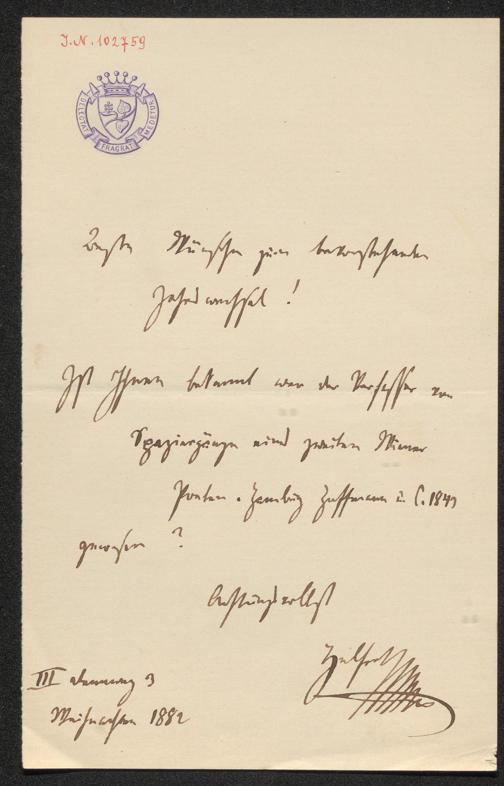 I.N. 102759
DELECTAT FRAGRAT MEDETUR
Beste Wünsche zum bevorstehenden
Jahreswechsel!
Ist Ihnen bekannt wer der Verfasser von
Spaziergänge eines zweiten Wiener
Poeten. Hamburg Hoffmann u. C.
gewesen?
Achtungsvollst
Helfert
III 3
Weihnachten 1882